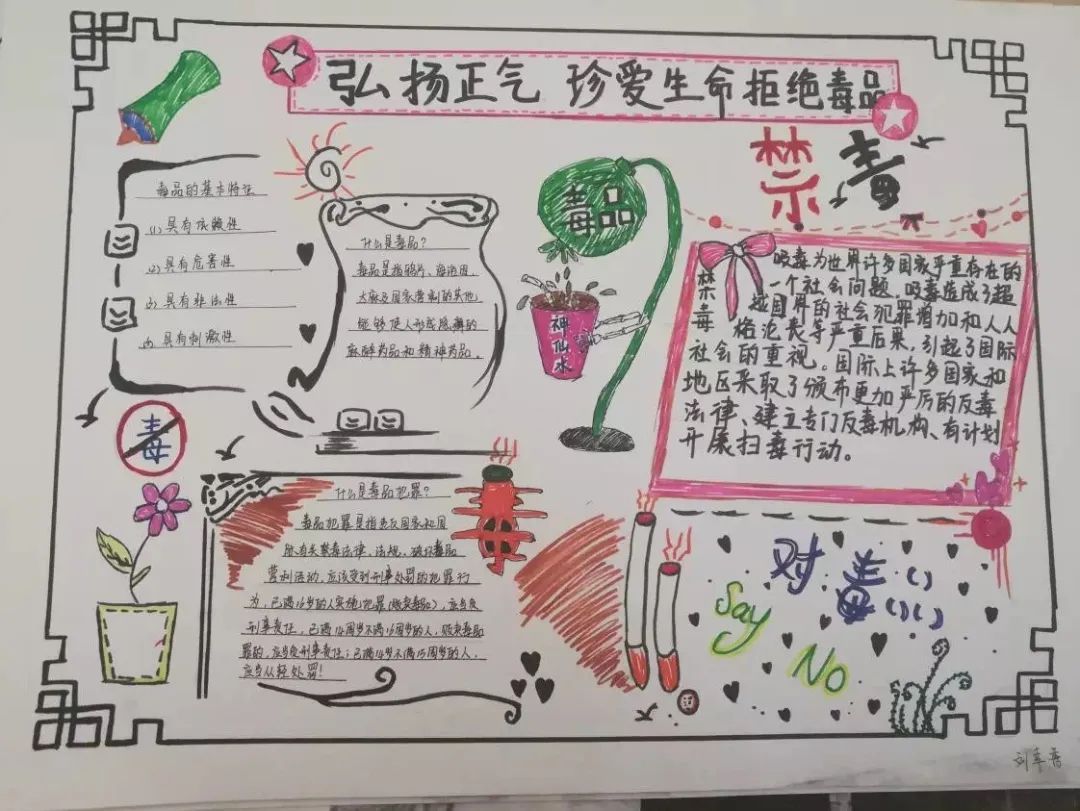 弘扬正气 珍爱生命拒绝毒品
禁毒
毒品的基本特征
(1) 具有依赖性
(2) 具有危害性
(3) 具有非法性
(4) 具有刺激性
什么是毒品？
毒品是指鸦片、海洛因、
大麻及国家管制的其他
能够使人形成瘾癖的
麻醉药品和精神药品。
毒品
神仙水
禁毒
吸毒为世界许多国家严重存在的
一个社会问题，吸毒造成了超
越国界的社会犯罪增加和人人
格沦丧等严重后果，引起了国际
社会的重视。国际上许多国家和
地区采取了颁布更加严厉的反毒
法律、建立专门反毒机构、有计划
开展扫毒行动。
毒
什么是毒品犯罪？
毒品犯罪是指违反国家和国
际有关禁毒法律、法规，破坏毒品
营利活动，应该受到刑事处罚的犯罪行
为，已满16岁的人实施犯罪(贩卖毒品)，应当负
刑事责任，已满14周岁不满16周岁的人，贩卖毒品
罪的，应当负刑事责任；已满14岁不满18周岁的人，
应当从轻处罚！
对毒
Say
No